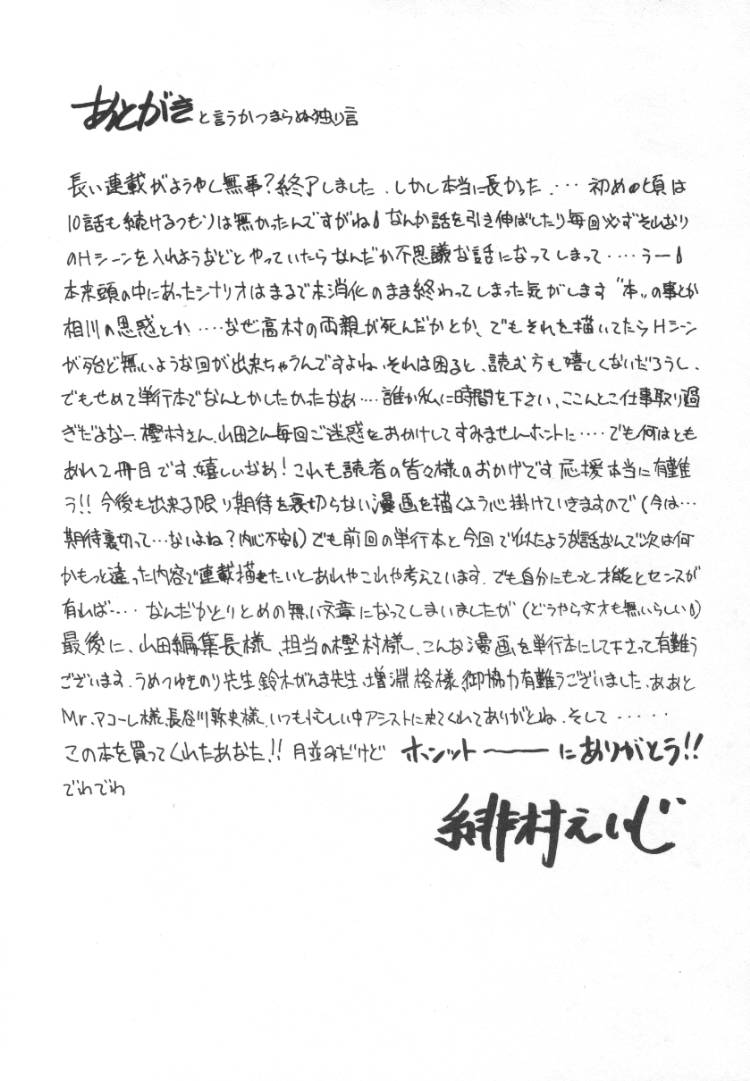 あとがきと言うかつまらぬ独り言
長い連載がようやく無事?終了しました、しかし本当に長かった、… 初めの頃は
10話も続けるつもりは無かったんですがね なんか話を引き伸ばしたり毎回必ずそれなり
のHシーンを入れようなどとやっていたらなんだか不思議な話になってしまって・・・・うー
本来頭の中にあったシナリオはまるで未消化のまま終わってしまった気がします "本"の事とか
相川の思惑とか・・・・なぜ高村の両親が死んだかとか、でもそれを描いてたらHシーン
が殆ど無いような回が出来ちゃうんですよね、それは困ると、読む方も嬉しくないだろうし、
でもせめて単行本でなんとかしたかったなあ・・・・誰か私に時間を下さい、ここんとこ仕事取り過
ぎだよなー、樫村さん、山田さん毎回ご迷惑をおかけしてすみませんホントに・・・・でも何はとも
あれ2冊目です、嬉しいなあ!これも読者の皆々様のおかげです 応援本当に有難
う!!今後も出来る限り期待を裏切らない漫画を描くよう心掛けていきますので(今は…
期待裏切って…ないよね?内心不安)でも前回の単行本と今回で似たような話なんで次は何
かもっと違った内容で連載描きたいとあれやこれや考えています、でも自分にもっと才能とセンスが
有れば・・・・ なんだかとりとめの無い文章になってしまいましたが(どうやら文才も無いらしい)
最後に、山田編集長様、担当の樫村様、こんな漫画を単行本にして下さって有難う
ございます、うめつゆきのり先生、鈴木がんま先生、増淵格様、御協力有難うございました、ああと
Mr.アコーレ様、長谷川幹史様、いつも忙しい中アシストに来てくれてありがとね、そして・・・・・
この本を買ってくれたあなた!!月並みだけど ホンット――にありがとう!!
でわでわ
緋村えいじ